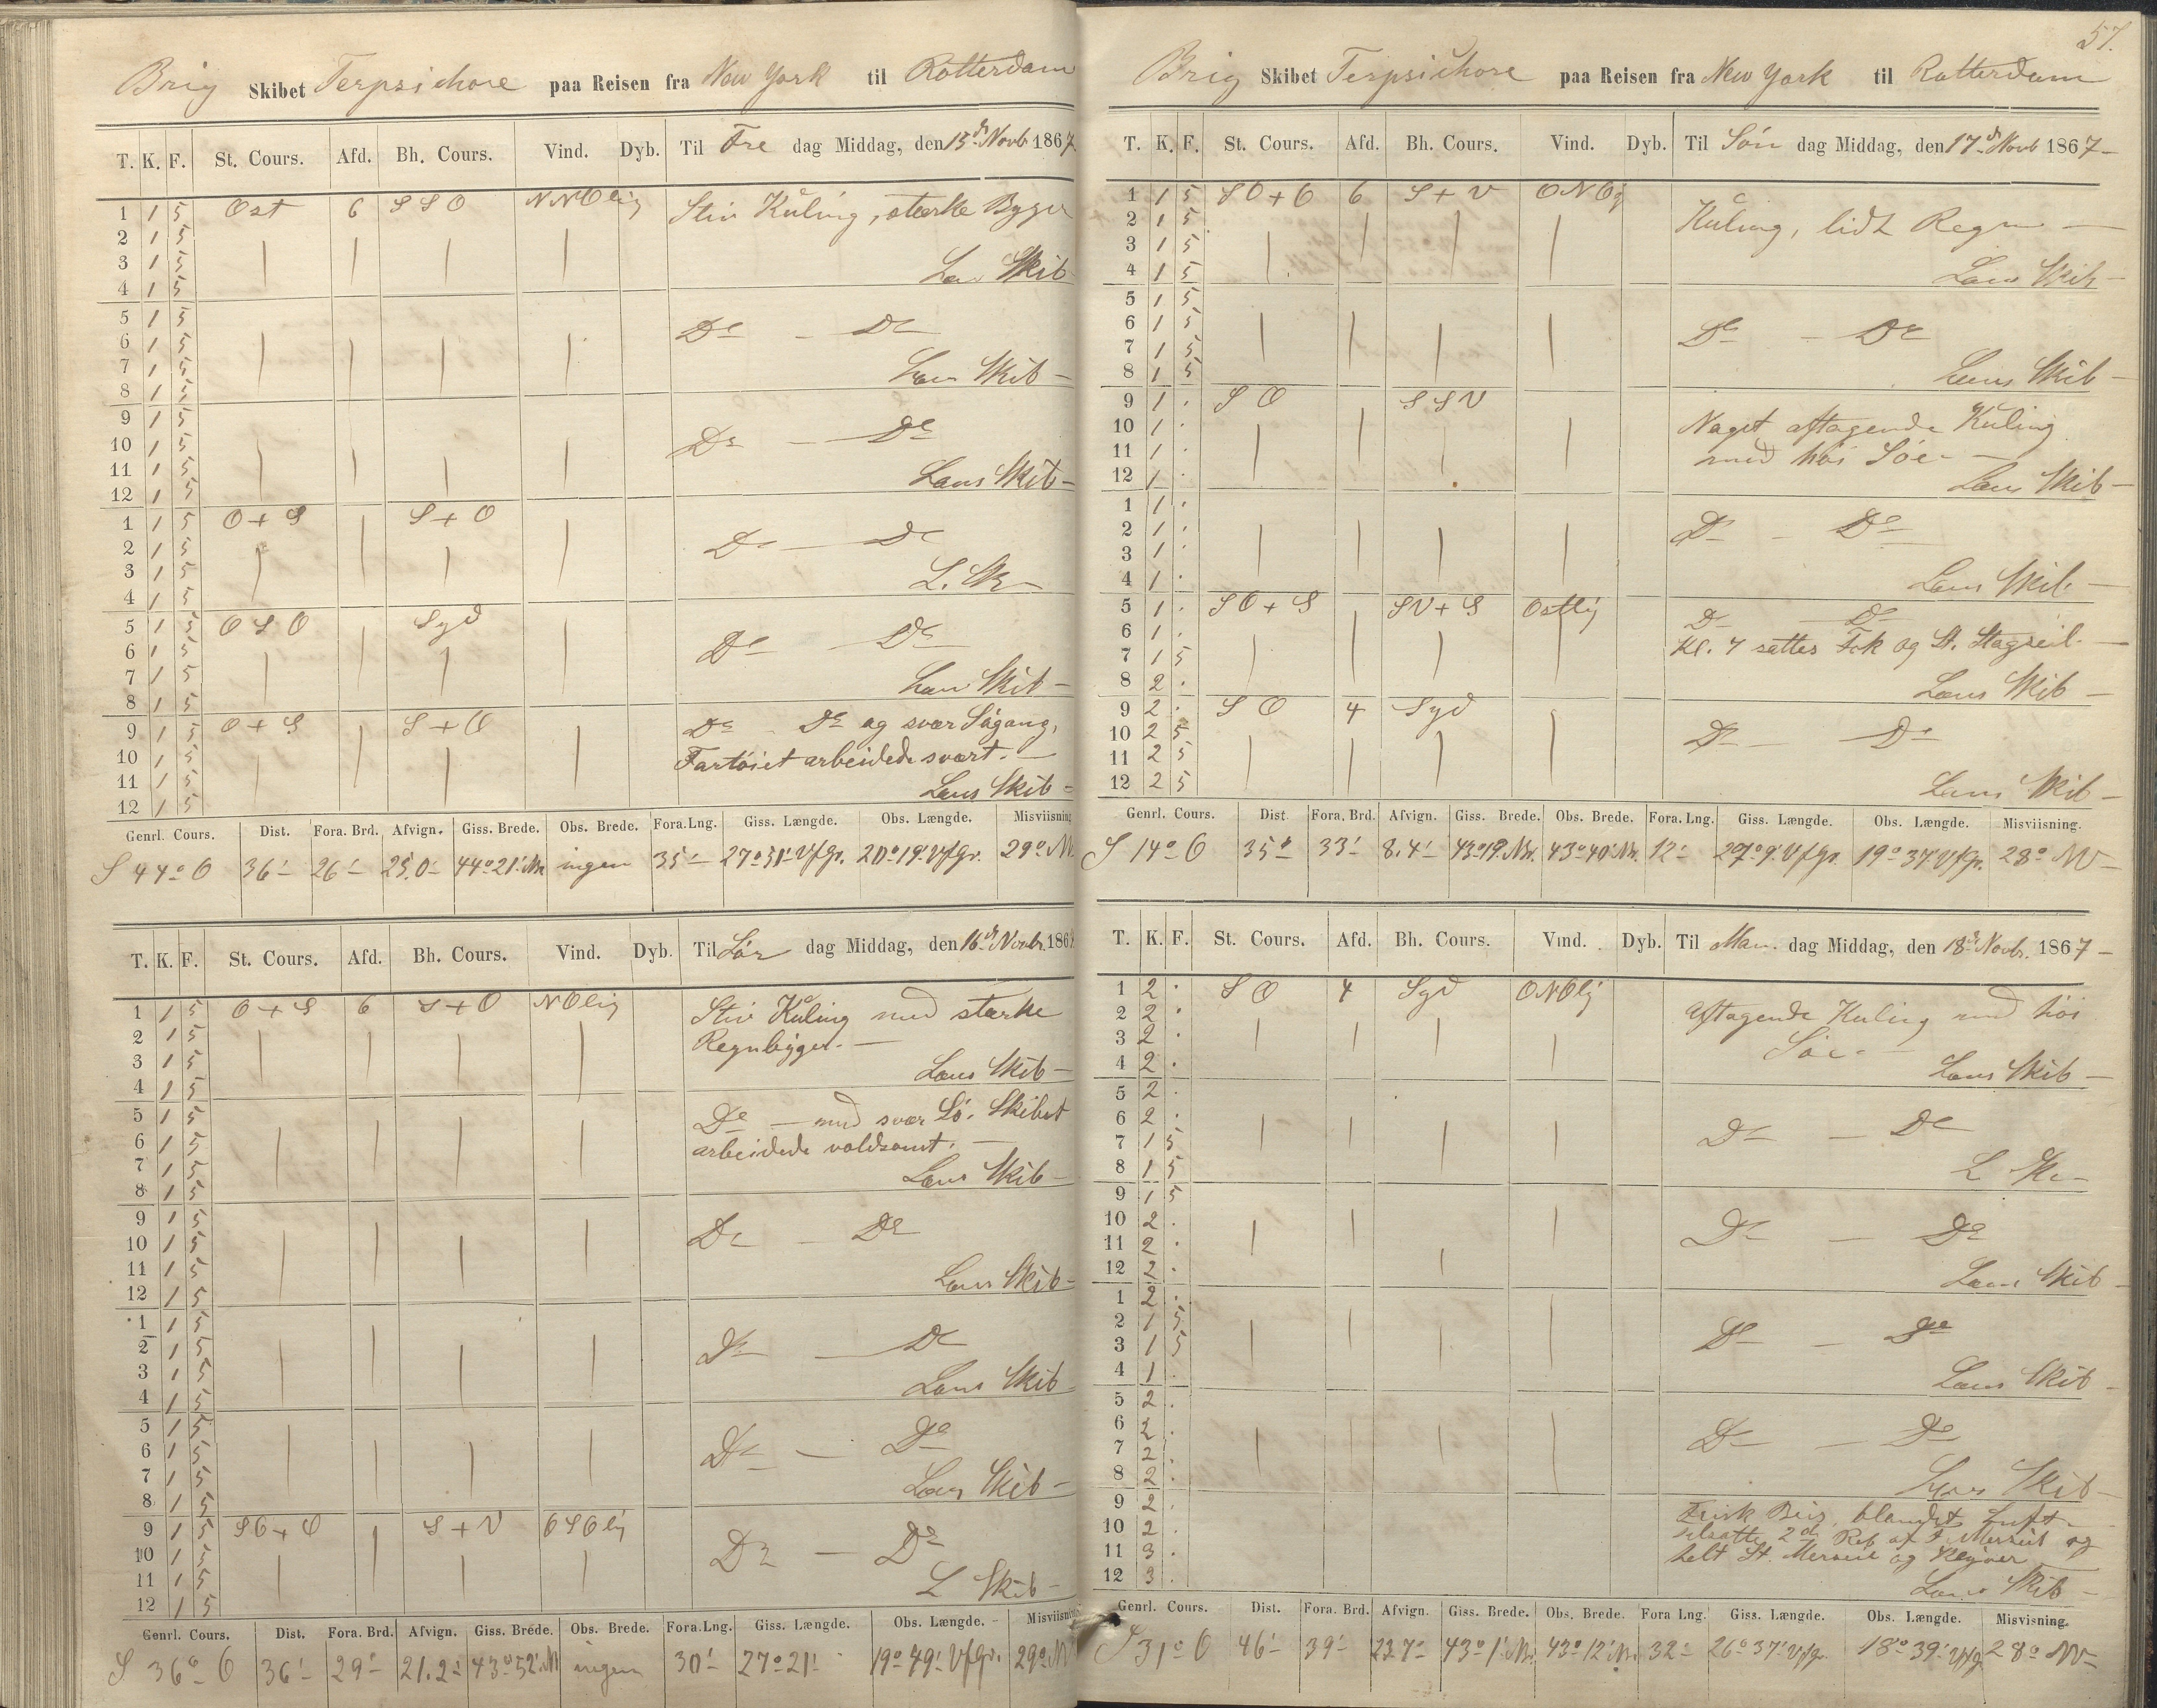 Brig Skibet Terpsichore paa Reisen fra New York til Rotterdam
T. K. F. St. Cours. Afd. Bh. Cours. Vind. Dyb. Til Fre dag Middag, den 15de Novb 1867
1 1 5 Ost 6 S S O N N O lig Stiv Kuling, stærke Byger
2 1 5
3 1 5 Læns Skib
4 1 5
5 1 5
6 1 5 Do - Do
7 1 5
8 1 5 Læns Skib -
9 1 5
10 1 5 Do - Do
11 1 5
12 1 5 Læns Skib -
1 1 5 O + S S + O
2 1 5 Do - Do
3 1 5 L. Sk -
4 1 5
5 1 5 O S O Syd
6 1 5 Do - Do
7 1 5 Læns Skib -
8 1 5
9 1 5 O + S S + O Do Do og svær Søgang,
10 1 5 Fartøiet arbeidede svært. -
11 1 5 Læns Skib -
12 1 5
Genrl. Cours. Dist. Fora. Brd. Afvign. Giss. Brede. Obs. Brede. Fora. Lng. Giss. Længde. Obs. Længde. Misviisning
S 44° O 36' 26' 25,0' 44° 21' N. ingen 35' 27° 31' V f Gr. 20° 19' V f Gr. 29° N
T. K. F. St. Cours. Afd. Bh. Cours. Vind. Dyb. Til Lør dag Middag, den 16de Novbr. 1867
1 1 5 O + S 6 S + O N O lig Stiv Kuling med stærke
2 1 5 Regnbyger. -
3 1 5 Læns Skib -
4 1 5
5 1 5 Do - med svær Sø. Skibet
6 1 5 arbeidede voldsomt. -
7 1 5 Læns Skib -
8 1 5
9 1 5
10 1 5 Do - Do
11 1 5
12 1 5 Læns Skib -
1 1 5
2 1 5 Do - Do
3 1 5
4 1 5 Læns Skib
5 1 5
6 1 5 Do - Do
7 1 5
8 1 5 Læns Skib -
9 1 5 S O + O S + V O S O lig
10 1 5 Do - Do
11 1 5 L Skib -
12 1 5
Genrl. Cours. Dist. Fora. Brd. Afvign. Giss. Brede. Obs. Brede. Fora. Lng. Giss. Længde. Obs. Længde. Misviisning
S 36° O 36' 29' 21.2' 43° 52' N ingen 30' 27° 21' 19° 49' V f Gr. 29° N
57.
Brig Skibet Terpsichore paa Reisen fra New York til Rotterdam
T. K. F. St. Cours. Afd. Bh. Cours. Vind. Dyb. Til Søn dag Middag, den 17de Novb 1867 -
1 1 5 S O + O 6 S + V O N O lg
2 1 5 Kuling, lidt Regn -
3 1 5
4 1 5 Læns Skib -
5 1 5
6 1 5 Do - Do
7 1 5
8 1 5 Læns Skib -
9 1 . S O S S V
10 1 . Noget aftagende Kuling
11 1 . med høi Søe -
12 1 . Læns Skib -
1 1 .
2 1 . Do - Do
3 1 .
4 1 . Læns Skib -
5 1 . S O + S S V + S Ostlig Do Do
6 1 . Kl. 7 sattes Fok og St. Stagseil. -
7 1 5
8 2 . Læns Skib -
9 2 . S O 4 Syd
10 2 5 Do - Do
11 2 5
12 2 5 Læns Skib -
Genrl. Cours. Dist Fora. Brd. Afvign. Giss. Brede. Obs. Brede. Fora. Lng. Giss. Længde. Obs. Længde. Misviisning.
S 14° O 35' 33' 8.4' 43° 19' N. 43° 40' N. 12' 27° 9' V f Gr. 19° 37' V f Gr. 28° NV -
T. K. F. St. Cours. Afd. Bh. Cours. Vind. Dyb. Til Man. dag Middag, den 18de Novbr. 1867 -
1 2 . S O 4 Syd O N O lig
2 2 . Aftagende Kuling med høi
3 2 . Søe. -
4 2 . Læns Skib -
5 2 .
6 2 . Do - Do
7 1 5
8 1 5 L Sk -
9 1 5
10 2 . Do - Do
11 2 .
12 2 . Læns Skib -
1 2 .
2 1 5 Do - Do
3 1 5
4 1 . Læns Skib -
5 2 .
6 2 . Do - Do
7 2 .
8 2 . Læns Skib -
9 2 . Frisk Bris, blandet Luft -
10 2 . 2det Reb af F. Merseil og
11 3 . helt St. Merseil og Klyver -
12 3 . Læns Skib -
Genrl. Cours. Dist. Fora. Brd. Afvign. Giss. Brede. Obs. Brede. Fora Lng. Giss. Længde. Obs. Længde. Misvisning.
S 31° O 46' 39' 23.7' 43° 1' N. 43° 12' N. 32' 26° 37' V f Gr. 18° 39' V f G. 28° NV -